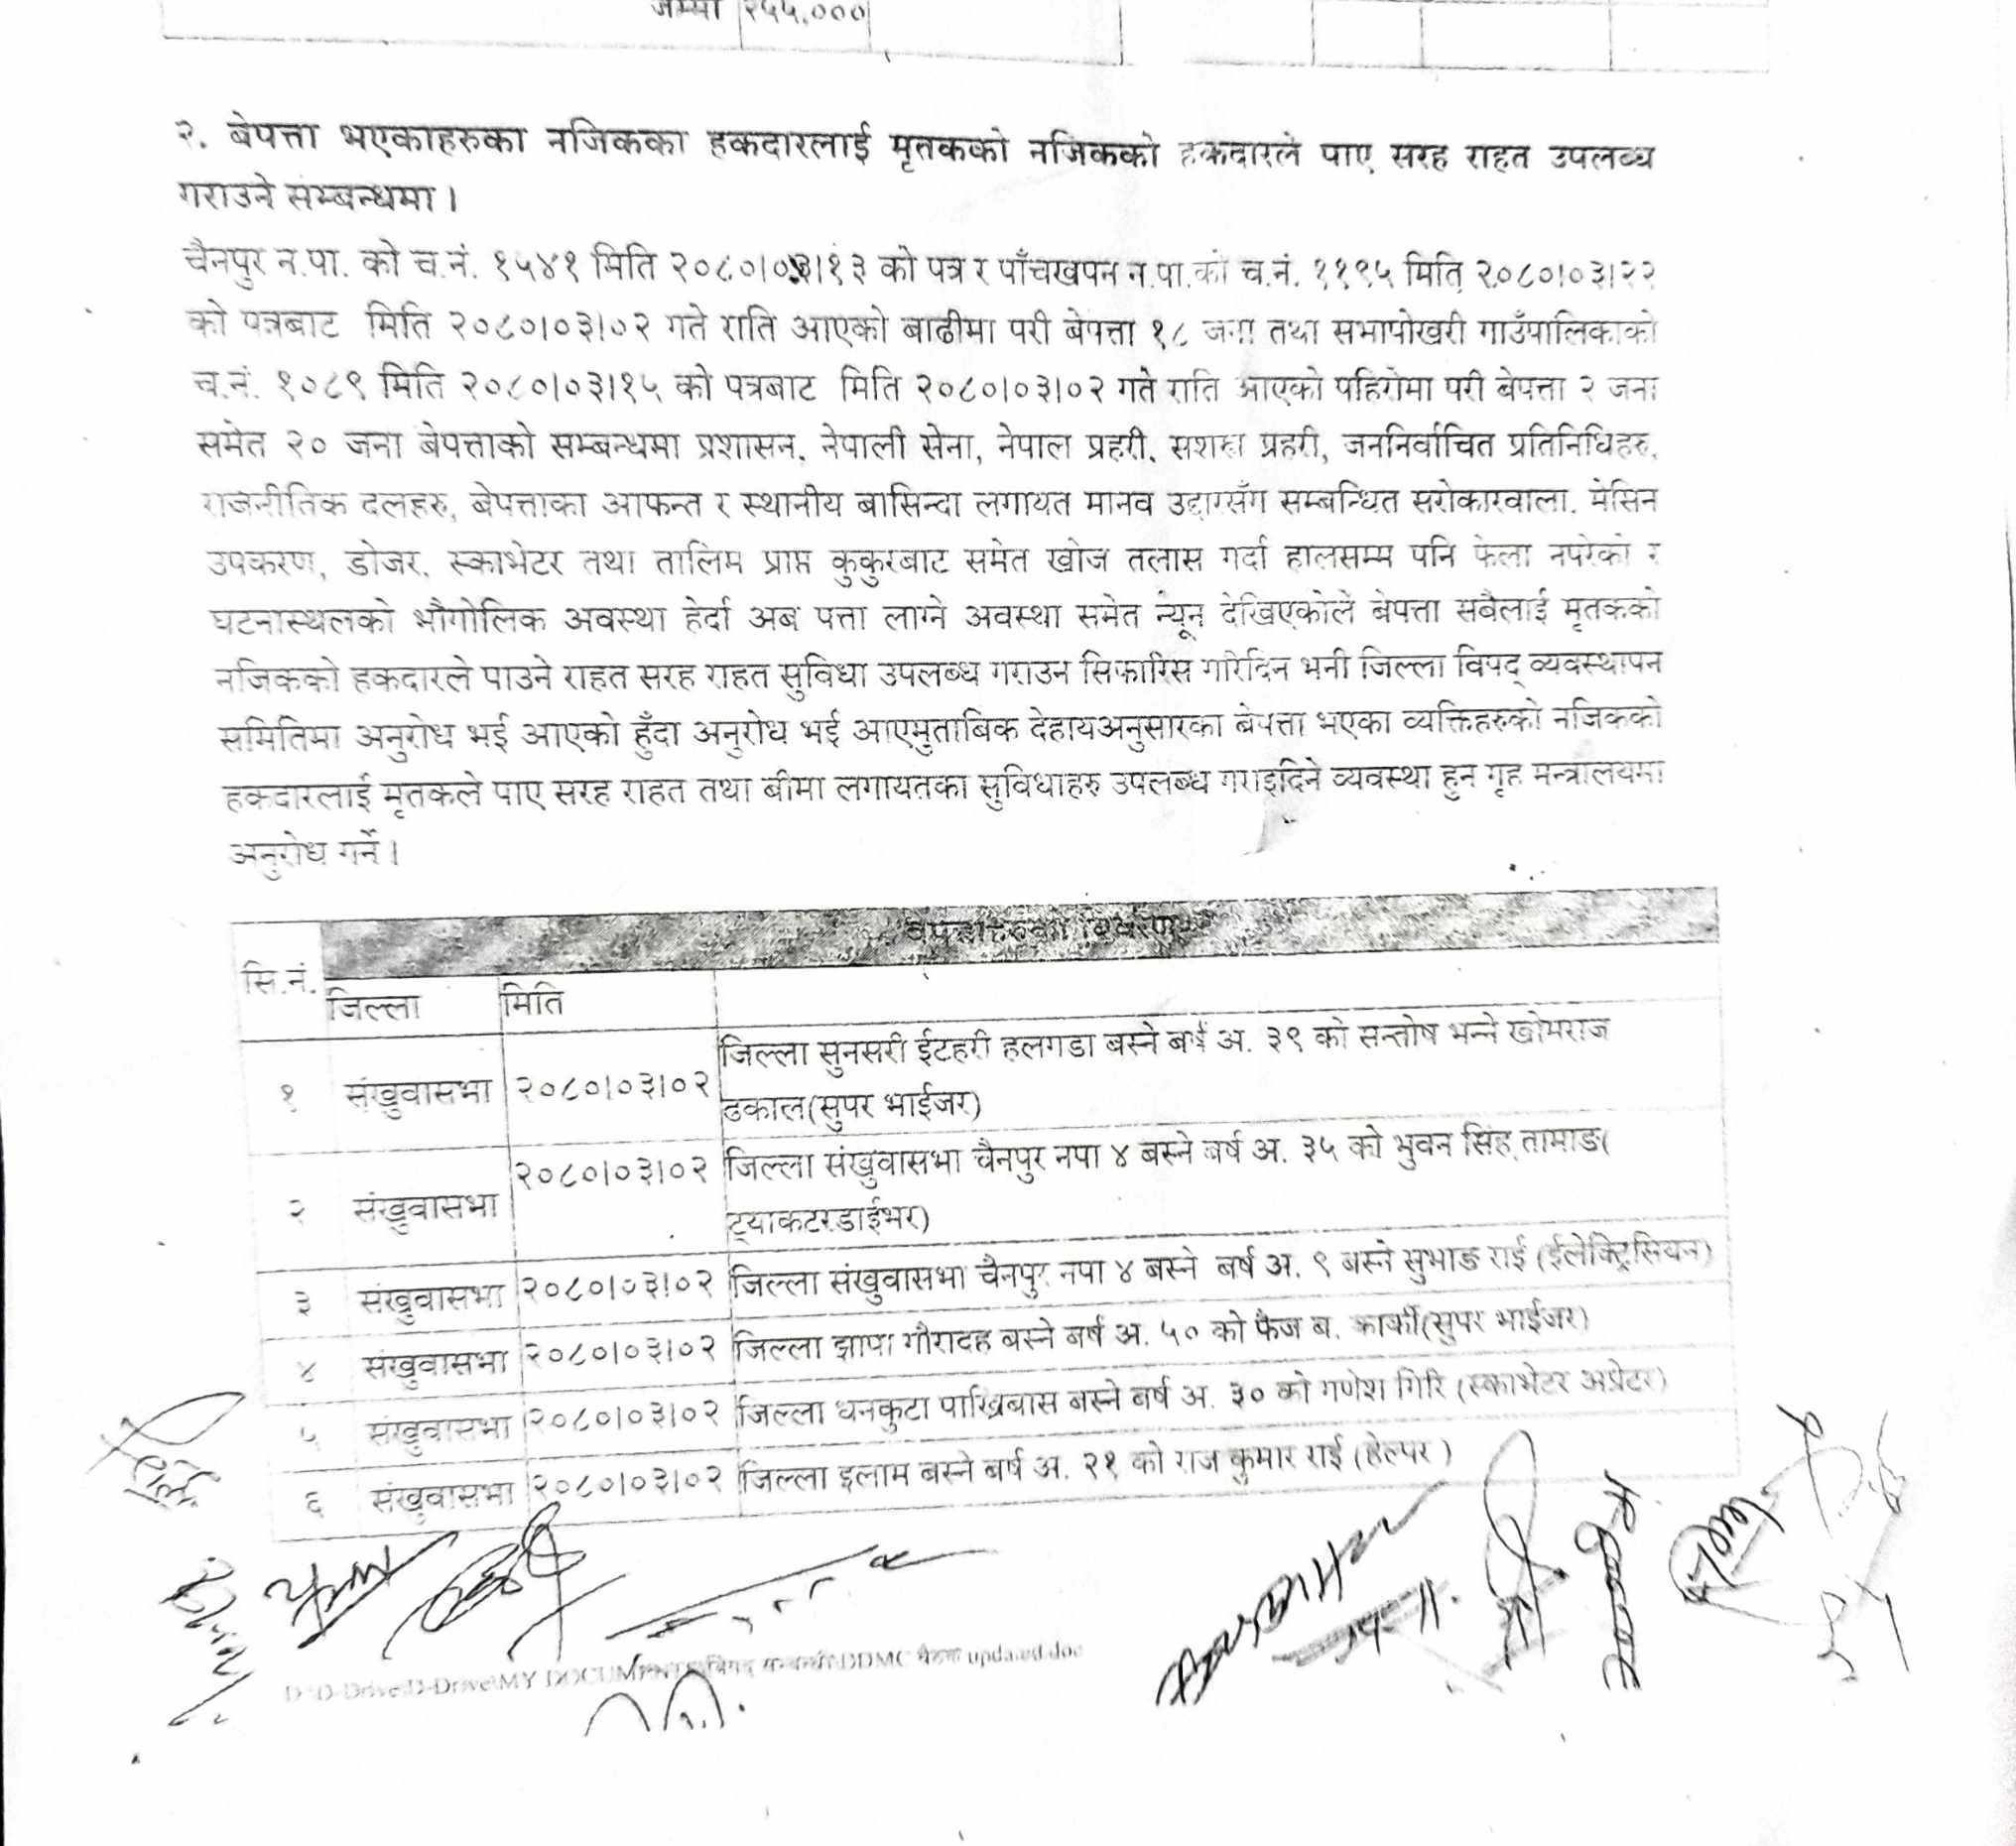 जम्मा २५५,०००
२. बेपत्ता भएकाहरुका नजिकका हकदारलाई मृतकको नजिकको हकदारले पाए सरह राहत उपलब्ध
गराउने सम्बन्धमा ।
चैनपुर न.पा. को च.नं. १५४१ मिति २०८०।०३।१३ को पत्र र पाँचखपन न.पा.को च.नं. ११९५ मिति २०८०।०३।२२
को पत्रबाट मिति २०८०।०३।०२ गते राति आएको बाढीमा परी बेपत्ता १८ जना तथा सभापोखरी गाउँपालिकाको
च.नं. १०८९ मिति २०८०।०३।१५ को पत्रबाट मिति २०८०।०३।०२ गते राति आएको पहिरोमा परी बेपत्ता २ जना
समेत २० जना बेपत्ताको सम्बन्धमा प्रशासन, नेपाली सेना, नेपाल प्रहरी, सशस्त्र प्रहरी, जननिर्वाचित प्रतिनिधिहरु,
राजनीतिक दलहरु, बेपत्ताका आफन्त र स्थानीय बासिन्दा लगायत मानव उद्दारसँग सम्बन्धित सरोकारवाला, मेसिन
उपकरण, डोजर, स्काभेटर तथा तालिम प्राप्त कुकुरबाट समेत खोज तलास गर्दा हालसम्म पनि फेला नपरेको र
घटनास्थलको भौगोलिक अवस्था हेर्दा अब पत्ता लाग्ने अवस्था समेत न्यून देखिएकोले बेपत्ता सबैलाई मृतकको
नजिकको हकदारले पाउने राहत सरह राहत सुविधा उपलब्ध गराउन सिफारिस गरिदिन भनी जिल्ला विपद् व्यवस्थापन
समितिमा अनुरोध भई आएको हुँदा अनुरोध भई आएमुताबिक देहायअनुसारका बेपत्ता भएका व्यक्तिहरुको नजिकको
हकदारलाई मृतकले पाए सरह राहत तथा बीमा लगायतका सुविधाहरु उपलब्ध गराइदिने व्यवस्था हुन गृह मन्त्रालयमा
अनुरोध गर्ने ।
बेपत्ताहरुको विवरण
सि.नं. जिल्ला मिति
१ संखुवासभा २०८०।०३।०२ जिल्ला सुनसरी ईटहरी हलगडा बस्ने बर्ष अ. ३९ को सन्तोष भन्ने खोमराज
ढकाल(सुपर भाईजर)
२ संखुवासभा २०८०।०३।०२ जिल्ला संखुवासभा चैनपुर नपा ४ बस्ने बर्ष अ. ३५ को भुवन सिंह तामाङ(
ट्याकटरडाईभर)
३ संखुवासभा २०८०।०३।०२ जिल्ला संखुवासभा चैनपुर नपा ४ बस्ने बर्ष अ. ९ बस्ने सुभाङ राई (ईलेक्ट्रिसियन)
४ संखुवासभा २०८०।०३।०२ जिल्ला झापा गौरादह बस्ने बर्ष अ. ५० को फैज ब. कार्की(सुपर भाईजर)
५ संखुवासभा २०८०।०३।०२ जिल्ला धनकुटा पाख्रिबास बस्ने बर्ष अ. ३० को गणेश गिरि (स्काभेटर अप्रेटर)
६ संखुवासभा २०८०।०३।०२ जिल्ला इलाम बस्ने बर्ष अ. २१ को राज कुमार राई (हेल्पर )
D-Drive\MY DOCUMENTS DDMC updated.doc